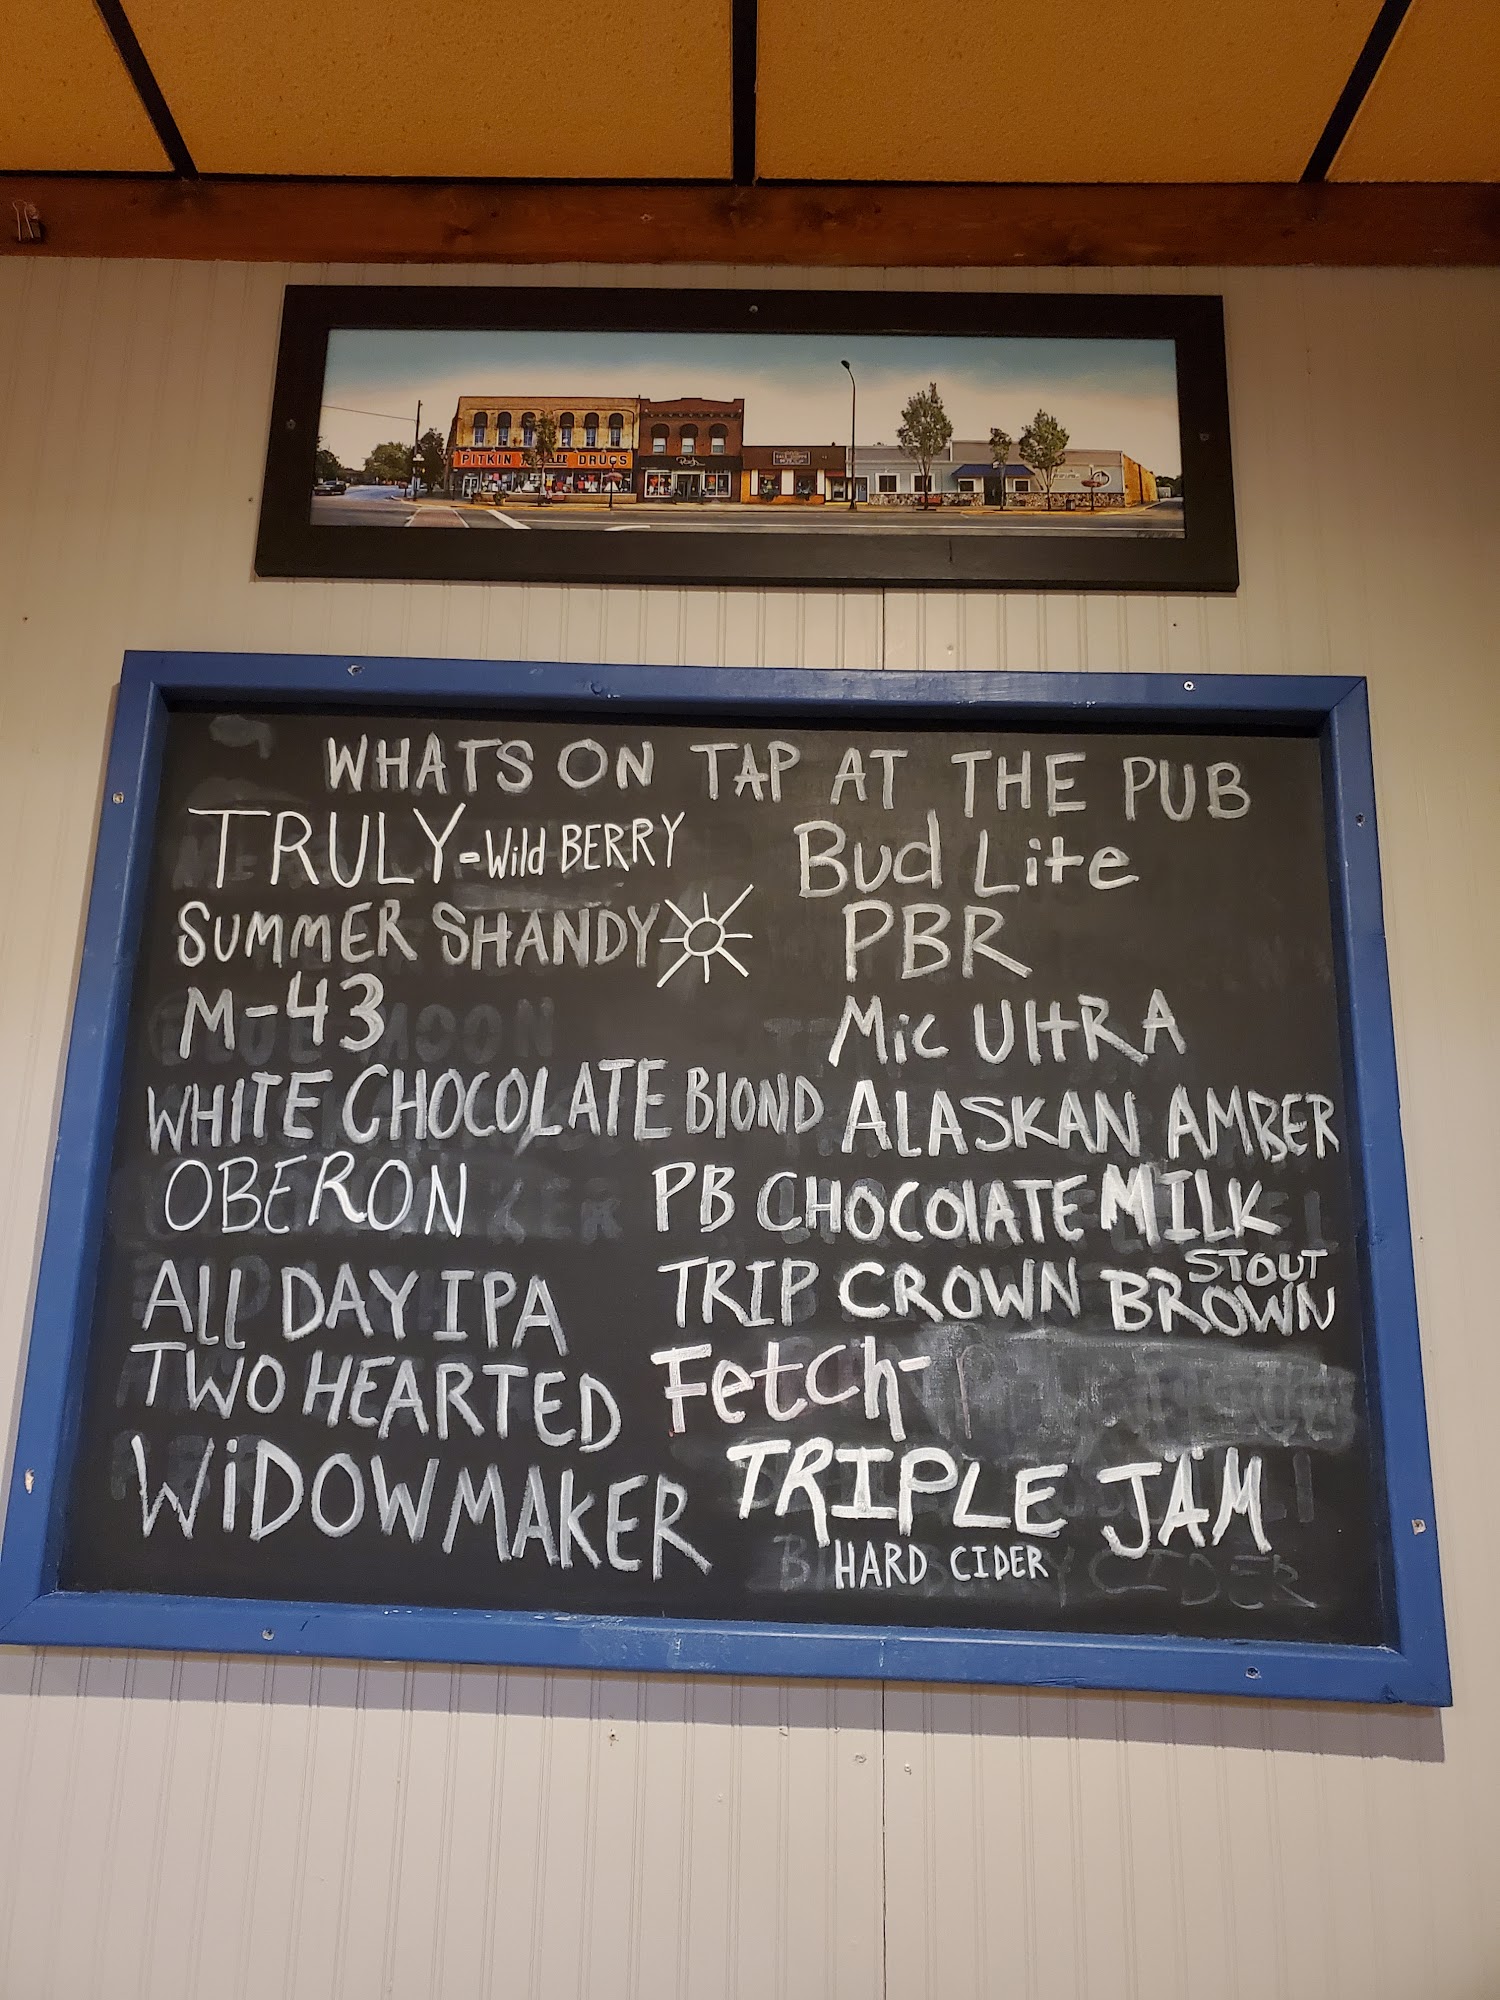 PITKIN DRUGS
WHATS ON TAP AT THE PUB
TRULY-Wild BERRY
SUMMER SHANDY
M-43
WHITE CHOCOLATE BlOND
OBERON
ALL DAY IPA
TWO HEARTED
WiDOWMAKER
Bud Lite
PBR
Mic UltRA
ALASKAN AMBER
PB CHOCOlATE MILK
STOUT
TRIP CROWN BROWN
Fetch-
TRIPLE JÄM
HARD CIDER